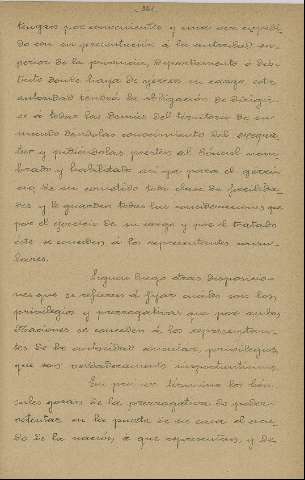 tengan por conveniente y una vez expedido
con su presentación á la autoridad su-
perior de la provincia, departamento ó dis-
trito donde haya de ejercer su cargo, esta
autoridad tendrá la obligación de dirigir-
se á todas las demás del territorio de su
mando dándolas conocimiento del exequa-
tur y pidiéndolas presten al Cónsul nom-
brado y habilitado ya para el ejerci-
cio de su cometido toda clase de facilida-
des y le guarden todas las consideraciones que
por el ejercicio de su cargo y por el tratado
este se conceden á los representantes consu-
lares.
Siguen luego otras disposicio-
nes que se refieren á fijar cuales son los
privilegios y prerrogativas que por ambas
Naciones se conceden á los representan-
tes de la autoridad consular, privilegios
que son verdaderamente importantísimos.
En primer término los Cón-
sules gozan de la prerrogativa de poder
ostentar en la puerta de su casa el escu-
do de la nación á que representan, y de